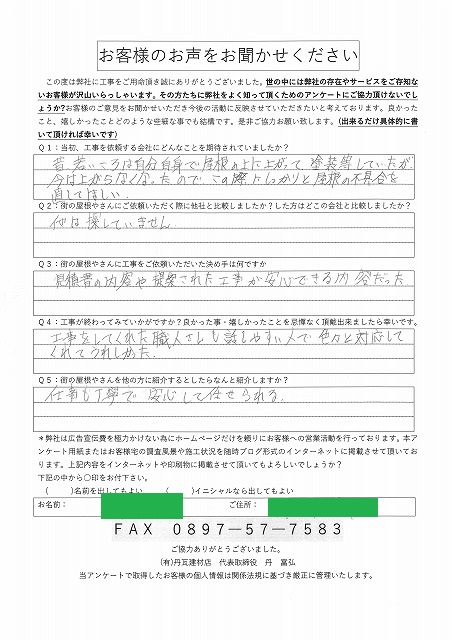 お客様のお声をお聞かせください
この度は弊社に工事をご用命頂き誠にありがとうございました。世の中には弊社の存在やサービスをご存知ないお客様が沢山いらっしゃいます。その方たちに弊社をよく知って頂くためのアンケートにご協力頂けないでしょうか?お客様のご意見をお聞かせいただき今後の活動に反映させていただきたいと考えております。良かったこと、嬉しかったことどのような些細な事でも結構です。是非ご協力お願い致します。(出来るだけ具体的に書いて頂ければ幸いです)
Q1:当初、工事を依頼する会社にどんなことを期待されていましたか?
昔若いころは自分自身で屋根の上に上がって塗装等していたが、
今は上がらなくなったので、この際にしっかりと屋根の不具合を
直してほしい
Q2:街の屋根やさんにご依頼いただく際に他社と比較しましたか?した方はどこの会社と比較しましたか?
他は探していません
Q3:街の屋根やさんに工事をご依頼いただいた決め手は何ですか
見積書の内容や提案された工事が安心できる内容だった
Q4:工事が終わってみていかがですか?良かった事・嬉しかったことを忌憚なく頂戴出来ましたら幸いです。
工事をしてくれた職人さんも話しやすい人で色々と対応して
くれてうれしかった。
Q5:街の屋根やさんを他の方に紹介するとしたらなんと紹介しますか?
仕事も丁寧で安心して任せられる。
*弊社は広告宣伝費を極力かけない為にホームページだけを頼りにお客様への営業活動を行っております。本アンケート用紙またはお客様宅の調査風景や施工状況を随時ブログ形式のインターネットに掲載させて頂いております。上記内容をインターネットや印刷物に掲載させて頂いてもよろしいでしょうか?
下記の中から〇印をお付下さい。
( )名前を出してもよい ( )イニシャルなら出してもよい
お名前: ご住所:
FAX 0897-57-7583
ご協力ありがとうございました。
(有)丹瓦建材店 代表取締役 丹 富弘
当アンケートで取得したお客様の個人情報は関係法規に基づき厳正に管理いたします。